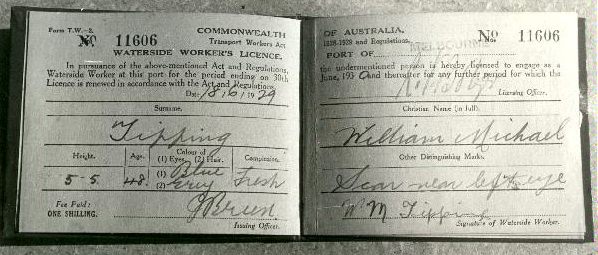 Form T.W.—3.
COMMONWEALTH
No. 11606
Transport Workers Act
WATERSIDE WORKER'S LICENCE.
In pursuance of the above-mentioned Act and Regulations,
Waterside Worker at this port for the period ending on 30th
Licence is renewed in accordance with the Act and Regulations.
Date 18/6/1929
Surname.
Tipping
Height. Age. Colour of (1) Eyes. (2) Hair. Complexion.
5-5 48. (1) Blue Fresh
(2) Grey
Fee Paid:
ONE SHILLING.
J Breen
Issuing Officer.
OF AUSTRALIA.
1928-1929 and Regulations.
No. 11606
MELBOURNE
PORT OF
the undermentioned person is hereby licensed to engage as a
June, 1930 and thereafter for any further period for which the
Licensing Officer.
Christian Name (in full).
William Michael
Other Distinguishing Marks.
Scar near left eye
W M Tipping
Signature of Waterside Worker.